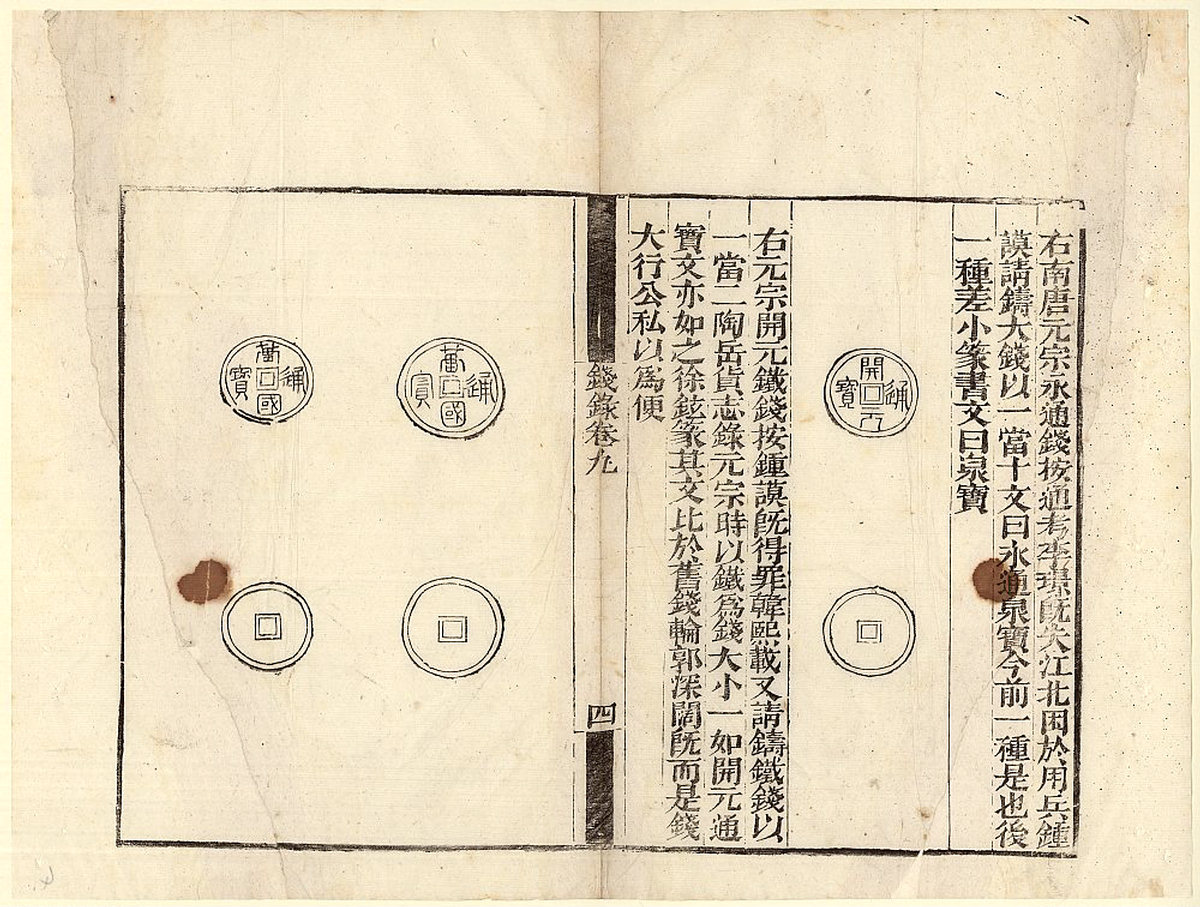 右南唐元宗永通錢按通考李璟旣失江北困於用兵鍾
謨請鑄大錢以一當十文曰永通泉寶今前一種是也後
一種差小篆書文曰泉寶
開元通寶
右元宗開元鐵錢按鍾謨旣得罪韓熙載又請鑄鐵錢以
一當二陶岳貨志錄元宗時以鐵爲錢大小一如開元通
寶文亦如之徐鉉篆其文比於舊錢輪郭深闊旣而是錢
大行公私以爲便
錢錄卷九
四
萬國通寶
萬國通寶